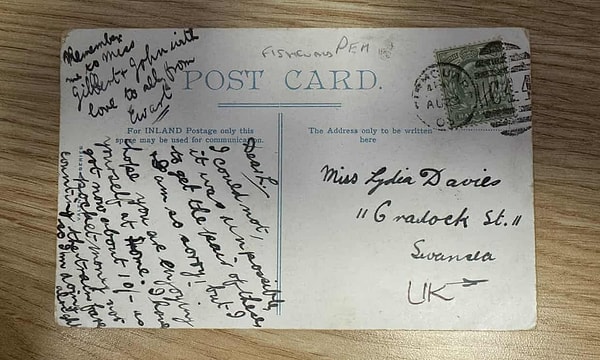 Remember
me to Miss
Gilbert & John with
love to all from
Ewart
FISHGUARD PEM
POST CARD.
For INLAND Postage only this
space may be used for communication.
The Address only to be written
here
Dear L.
I could not,
it was impossible
to get the pair of these
I am so sorry; but I
hope you are enjoying
yourself at home. I have
got now about 10/- as
pocket-money not
counting the train fare
so I'm doing alright
Miss Lydia Davies
"Cradock St."
Swansea
UK
FISHGUARD
AU